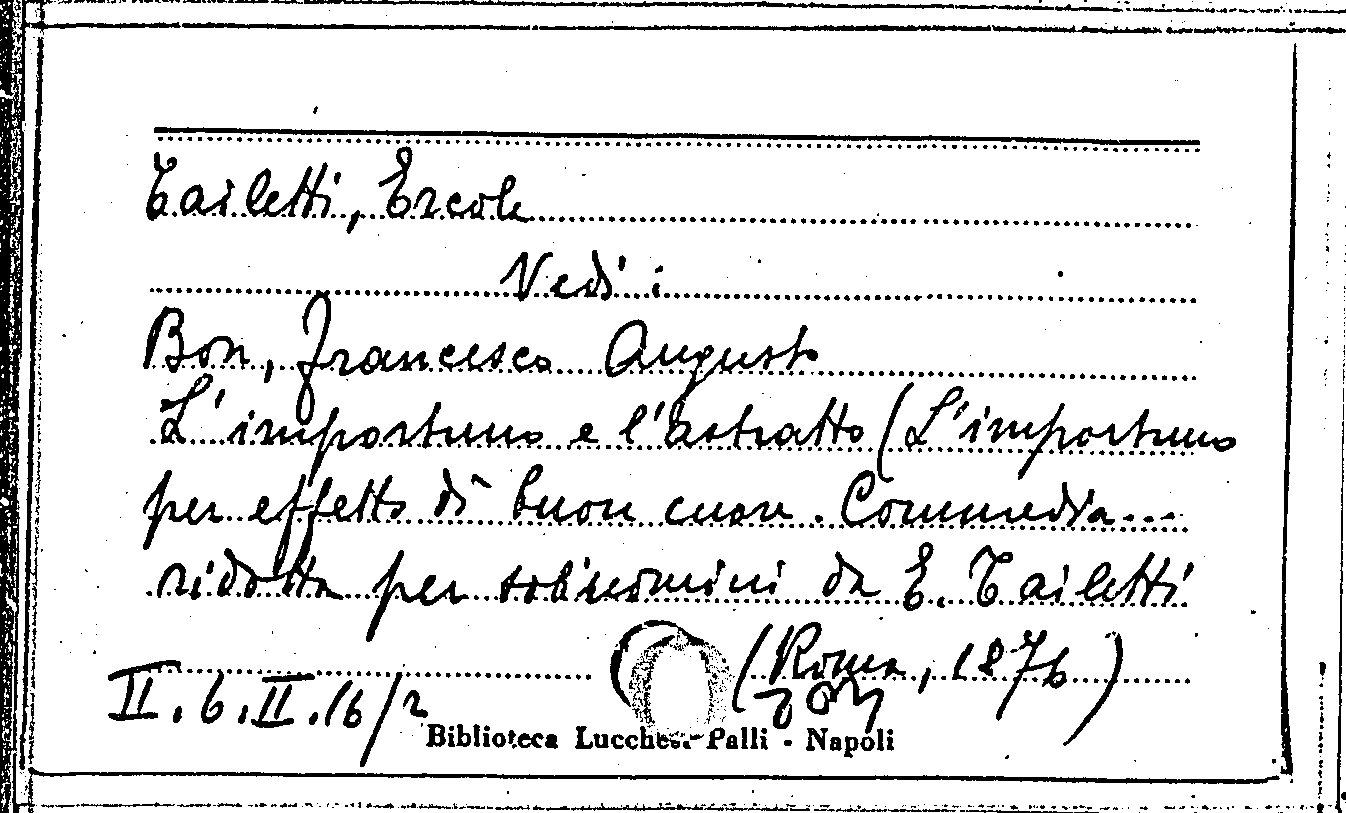 Tailetti, Ercole
Vedi:
Bon, Francesco Augusto
L'importuno e l'astratto (L'importuno
per effetto di buon cuore. Commedia...
ridotta per soli uomini da E. Tailetti
(Roma, 1876)
II.6.II.16/2
Biblioteca Lucchesi Palli - Napoli